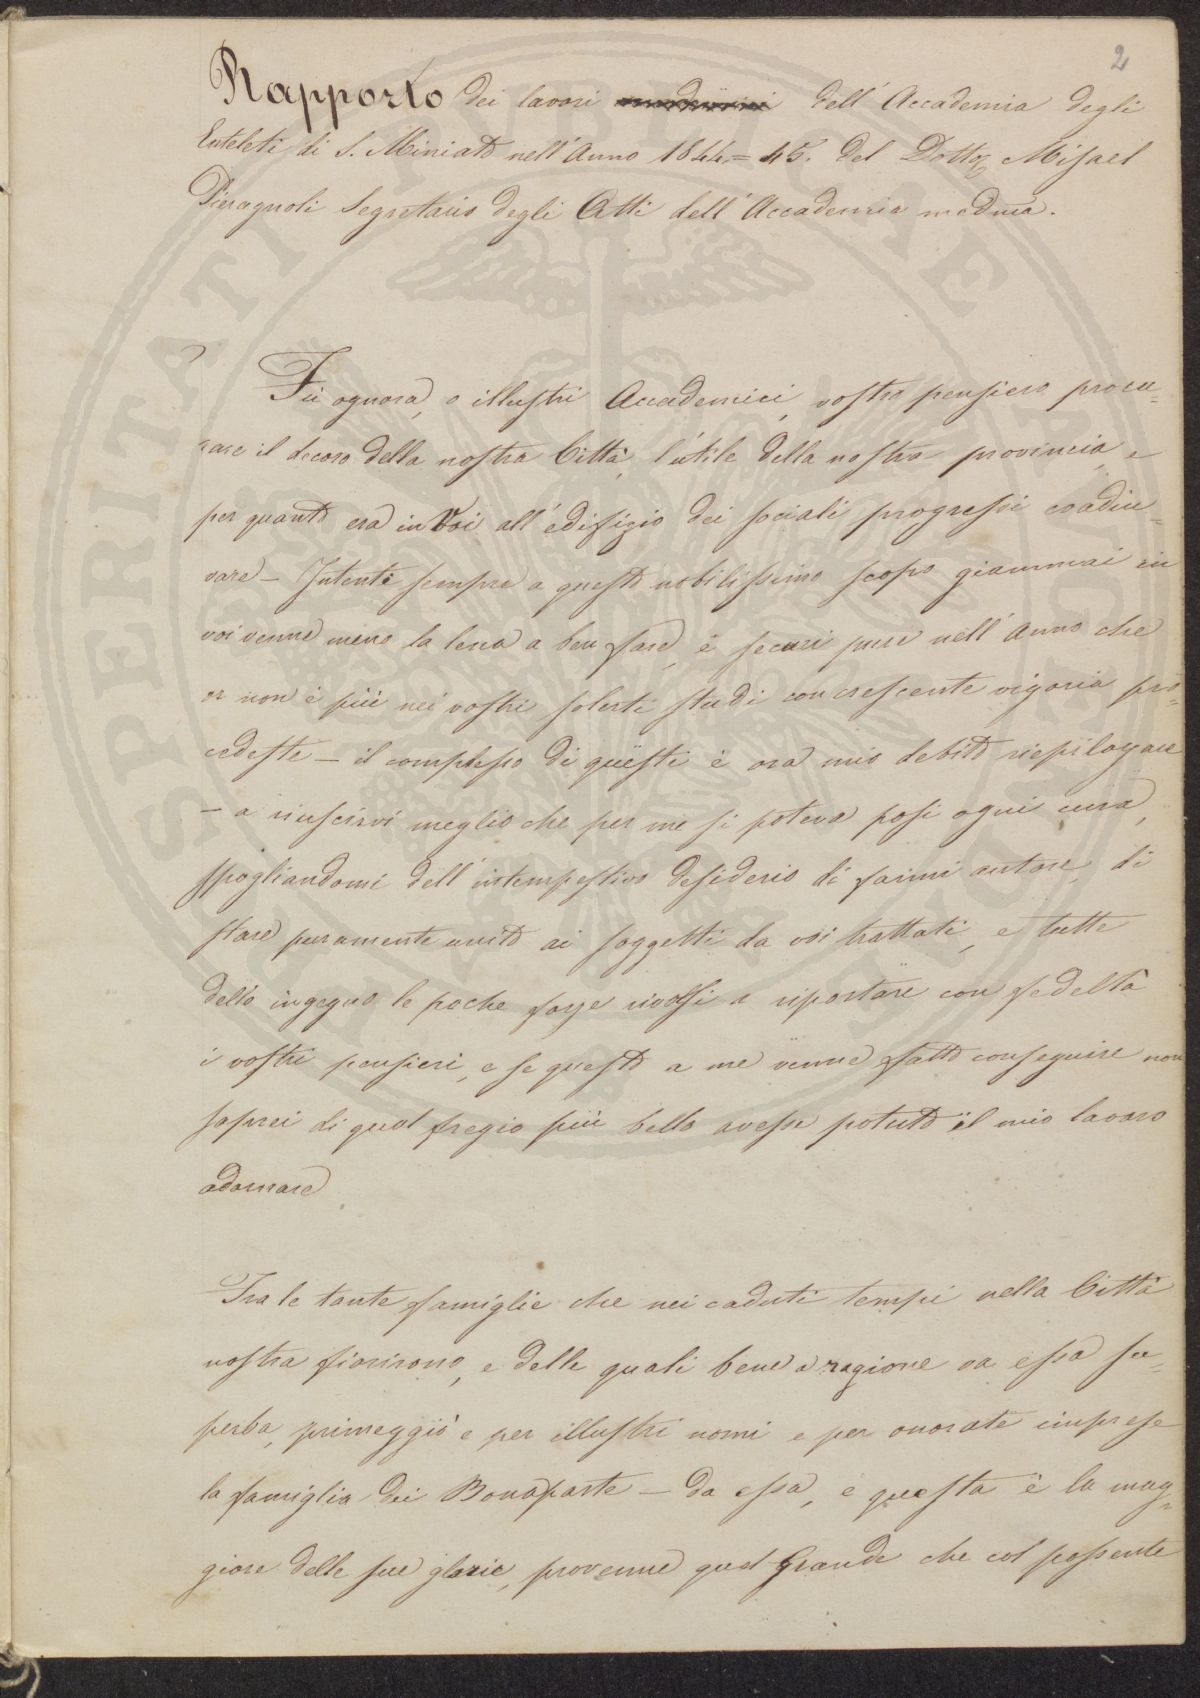 2
Rapporto dei lavori dell'Accademia degli
Euteleti di S. Miniato nell'Anno 1844=45. del Dottor Misael
Pieragnoli Segretario degli Atti dell'Accademia medesima.
Fù ognora, o illustri Accademici, vostro pensiero procu=
rare il decoro della nostra Città, l'utile della nostra provincia, e
per quanto era in Voi all'edifizio dei sociali progressi coadiu=
vare – Intenti sempre a questo nobilissimo scopo giammai in
voi venne meno la lena a ben fare, e securi pure nell'Anno che
or non è più nei vostri solerti studi con crescente vigoria pro=
cedeste – il complesso di questi è ora mio debito riepilogare
– a riuscirvi meglio che per me si poteva posi ogni cura,
spogliandomi dell'intempestivo desiderio di farmi autore, di
stare puramente unito ai soggetti da voi trattati, e tutte
dello ingegno le poche forze rivolsi a riportare con fedeltà
i vostri pensieri, e se questo a me venne fatto conseguire non
saprei di qual fregio più bello avesse potuto il mio lavoro
adornare
Fra le tante famiglie che nei caduti tempi nella Città
nostra fiorirono, e delle quali bene a ragione va essa su=
perba, primeggiò e per illustri nomi e per onorate imprese
la famiglia dei Bonaparte – da essa, e questa è la mag=
giore delle sue glorie, provenne quel Grande che col possente
SPERITATI PUBLICAE